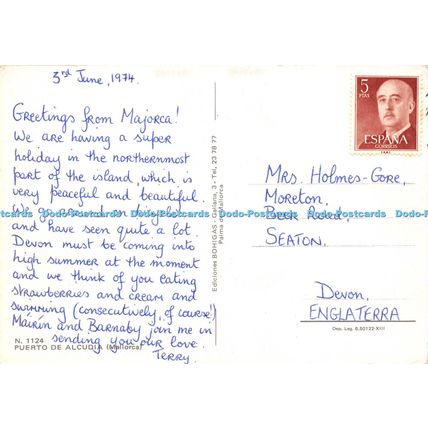 3rd June, 1974.
Greetings from Majorca!
We are having a super
holiday in the northernmost
part of the island, which is
very peaceful and beautiful.
We go on bicycles
and have seen quite a lot.
Devon must be coming into
high summer at the moment
and we think of you eating
strawberries and cream and
swimming (consecutively, of course!)
Máirín and Barnaby join me in
sending you our love.
Terry.
N. 1124
PUERTO DE ALCUDIA (Mallorca)
Ediciones BOHIGAS - Gallera, 3 - Tel. 23 78 77
Palma de Mallorca
5
PTAS
ESPAÑA
CORREOS
Mrs. Holmes-Gore,
Moreton,
Beer Road,
SEATON.
Devon,
ENGLATERRA
Dep. Leg. B.50122-XIII
Dodo-Postcards Dodo-Postcards Dodo-Postcards Dodo-Postcards